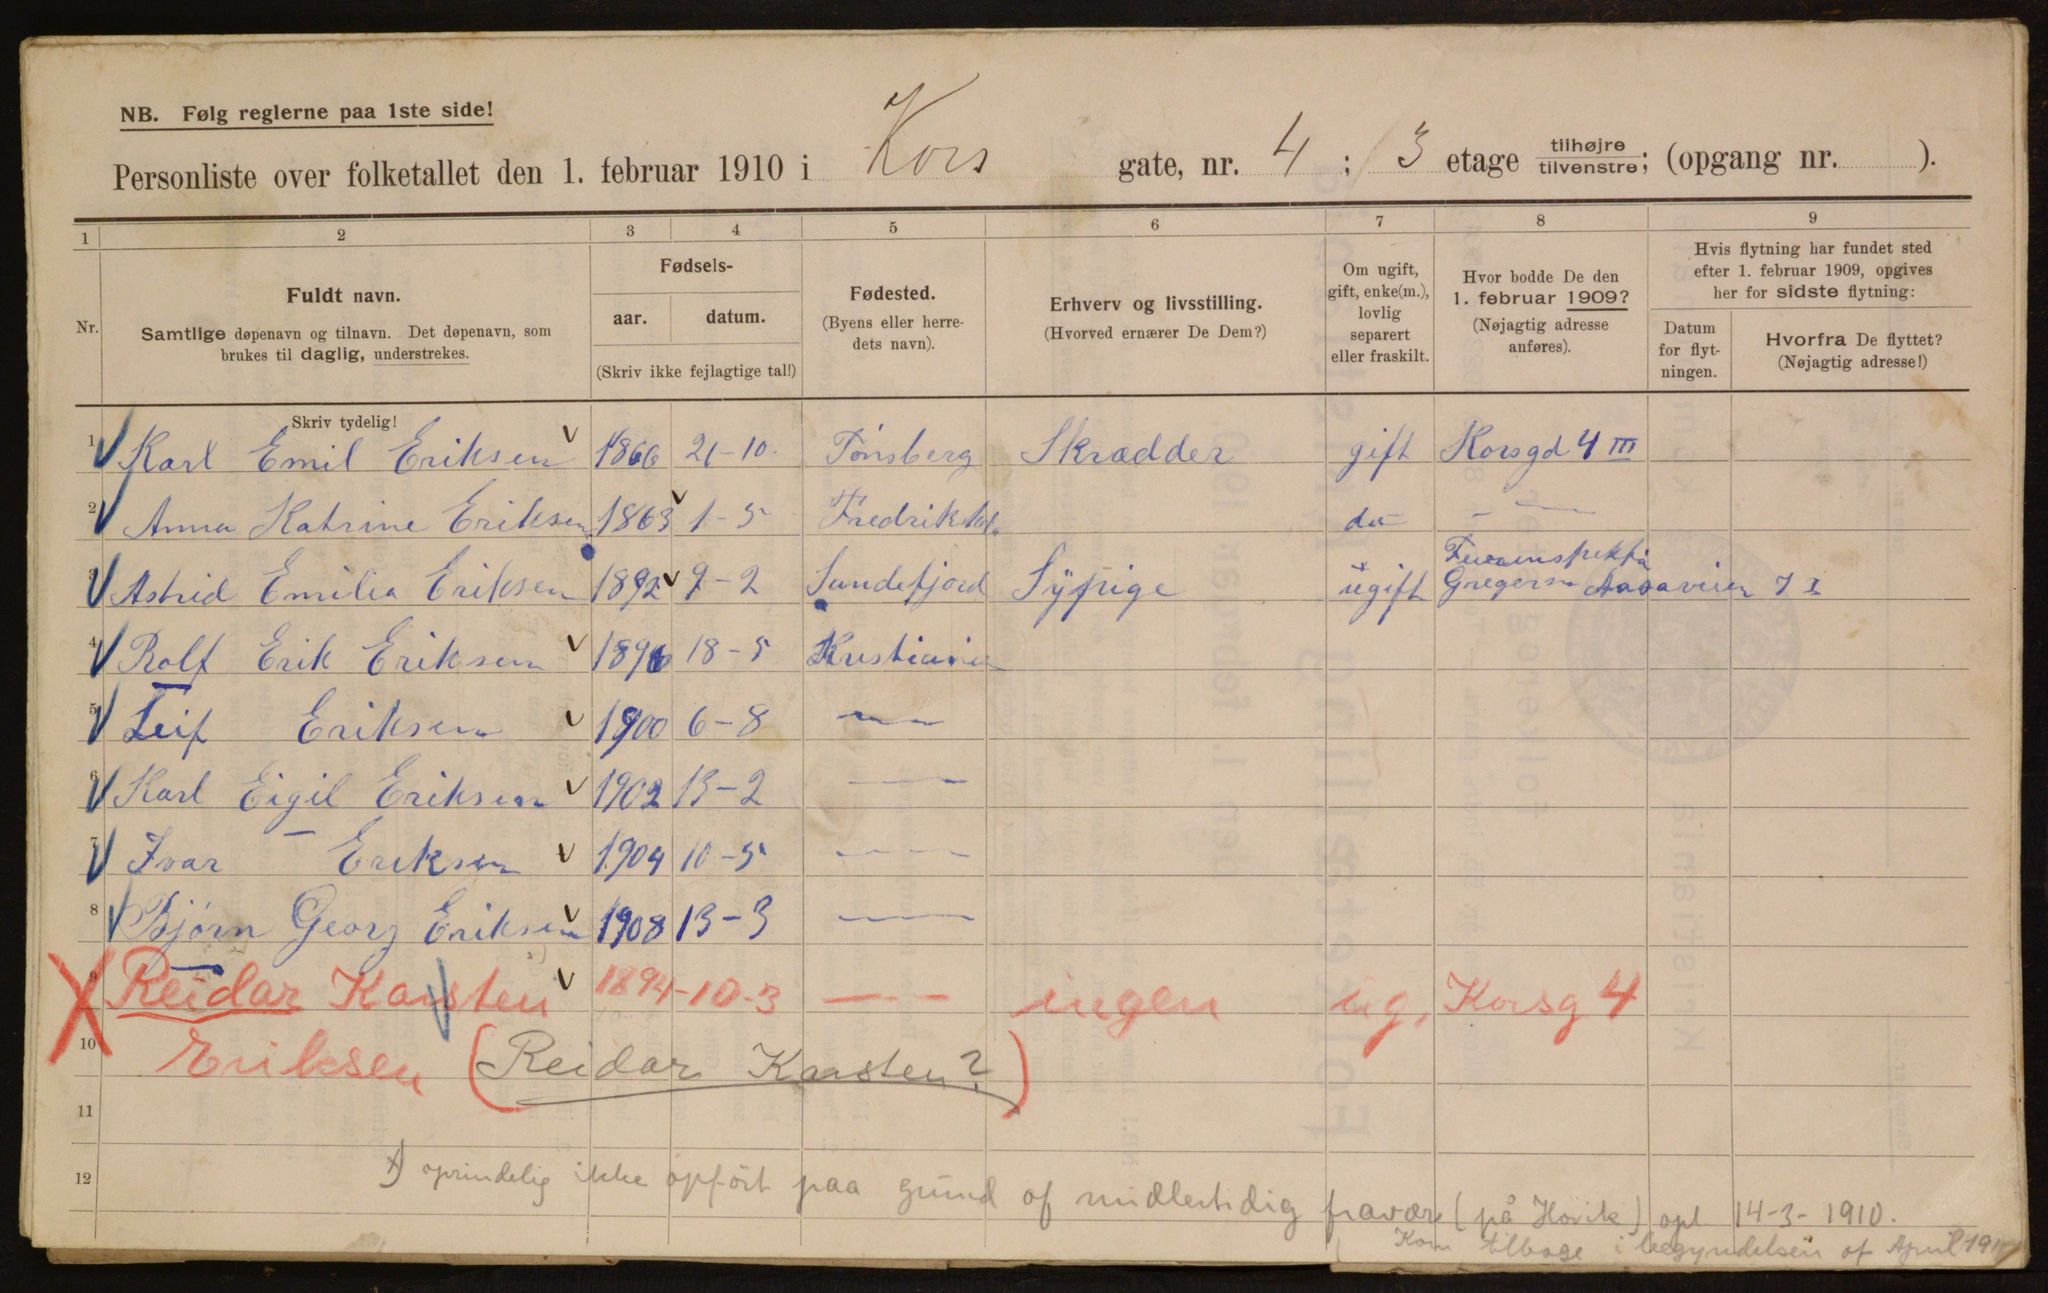 NB. Følg reglerne paa 1ste side!
Personliste over folketallet den 1. februar 1910 i Kors gate, nr. 4; 3 etage tilhøjre/tilvenstre; (opgang nr. ).
1 2 3 4 5 6 7 8 9
Nr.
Fuldt navn.
Samtlige døpenavn og tilnavn. Det døpenavn, som
brukes til daglig, understrekes.
Fødsels-
aar. datum.
(Skriv ikke fejlagtige tal!)
Fødested.
(Byens eller herre-
dets navn).
Erhverv og livsstilling.
(Hvorved ernærer De Dem?)
Om ugift,
gift, enke(m.),
lovlig
separert
eller fraskilt.
Hvor bodde De den
1. februar 1909?
(Nøjagtig adresse
anføres).
Hvis flytning har fundet sted
efter 1. februar 1909, opgives
her for sidste flytning:
Datum
for flyt-
ningen.
Hvorfra De flyttet?
(Nøjagtig adresse!)
Skriv tydelig!
1 Karl Emil Eriksen 1866 21-10. Tønsberg Skrædder gift Korsgd 4 III
2 Anna Katrine Eriksen 1863 1-5 Fredrikstad do — —
3 Astrid Emilia Eriksen 1892 9-2 Sandefjord Sypige ugift Gregersn 7 I
4 Rolf Erik Eriksen 1896 18-5 Kristiania
5 Leif Eriksen 1900 6-8 — —
6 Karl Eigil Eriksen 1902 13-2 — —
7 Ivar Eriksen 1904 10-5 — —
8 Bjørn Georg Eriksen 1908 13-3 — —
9 Reidar Karsten 1894-10-3 — — ingen ug. Korsg 4
10 Eriksen (Reidar Karsten?)
11
12
x) oprindelig ikke opført paa grund af midlertidig fravær (på Høvik) opt 14-3-1910.
Kom tilbage i begyndelsen af April 1910